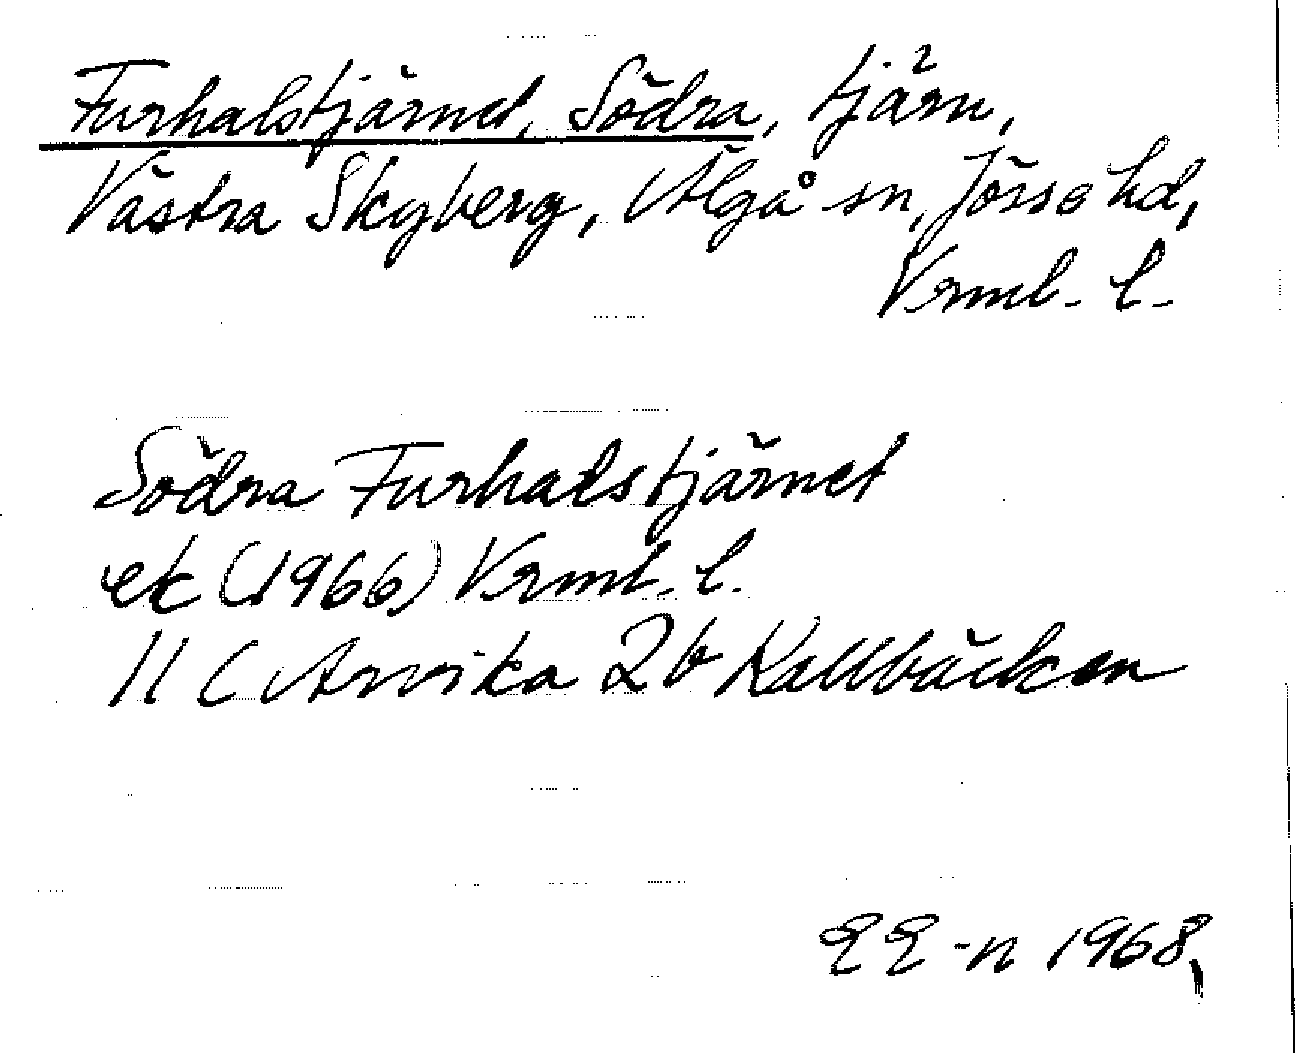 Furhalstjärnet, Södra, tjärn,
Västra Skyberg, Älgå sn, Jösse hd,
Vrml. l.
Södra Furhalstjärnet
ek (1966) Vrml. l.
11 C Arvika 2b Kallbäcken
EE-n 1968